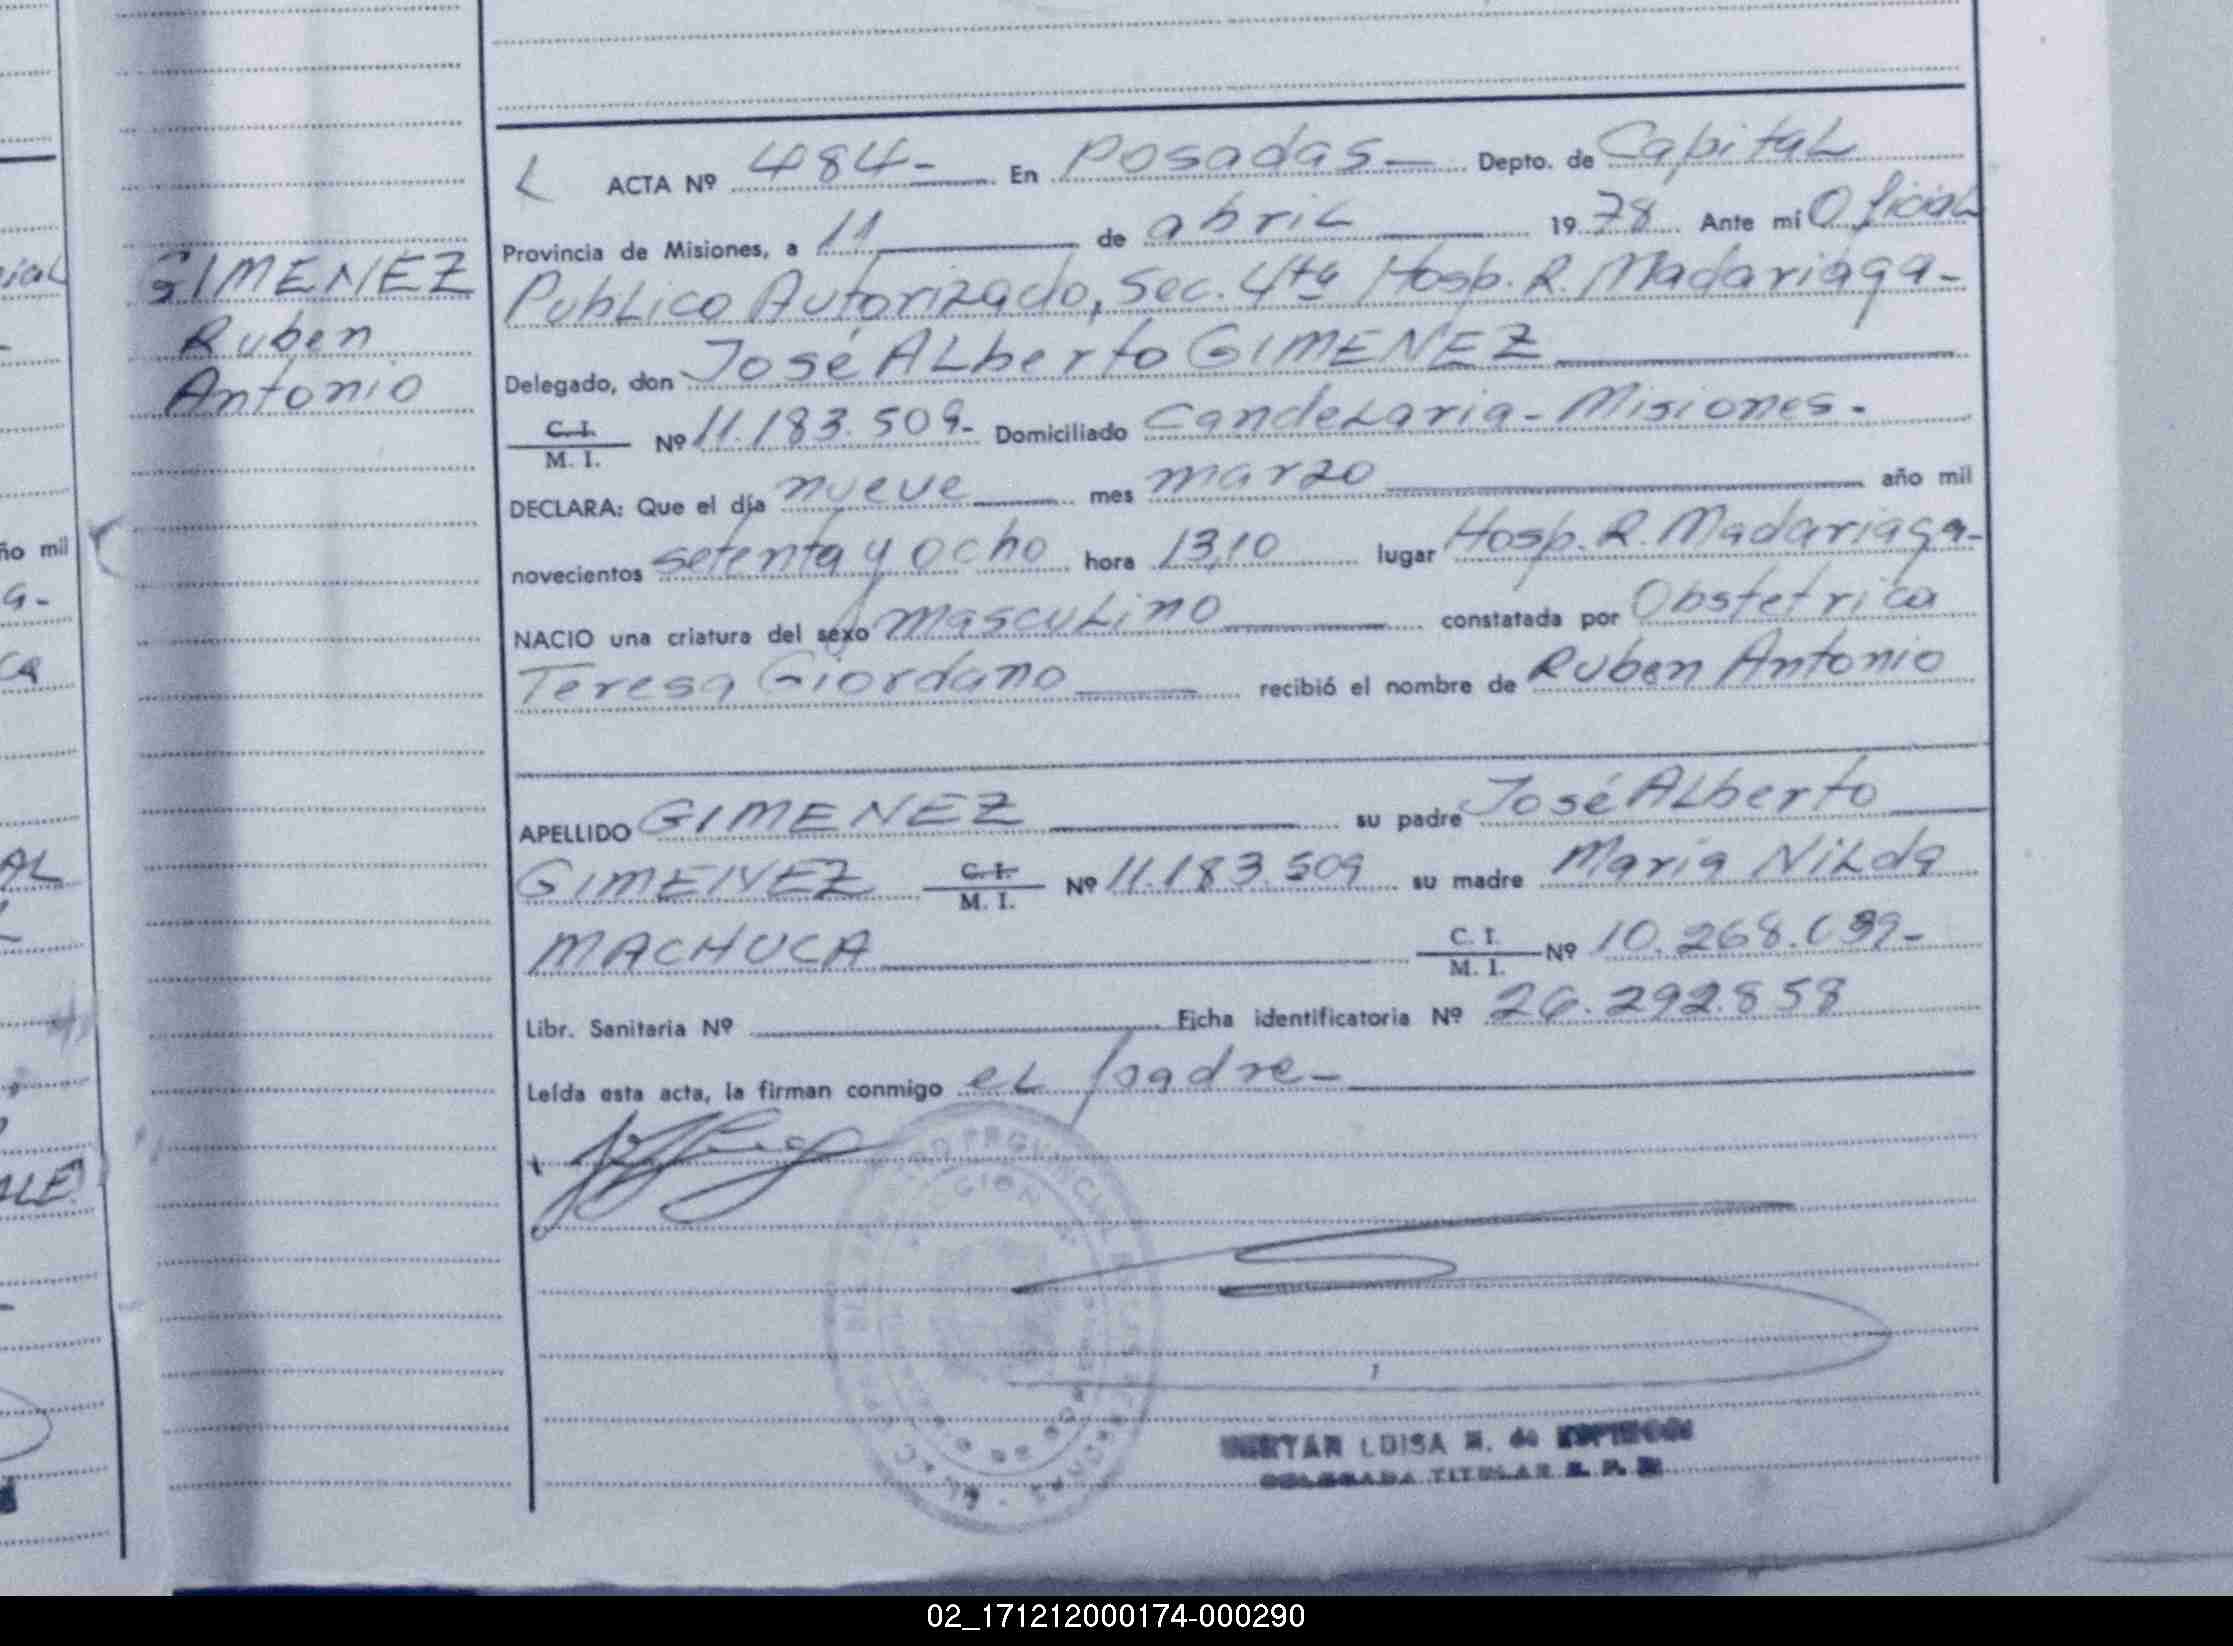 GIMENEZ
Ruben
Antonio
ACTA Nº 484- En Posadas- Depto. de Capital
Provincia de Misiones, a 11 de abril 1978 Ante mí Oficial
Publico Autorizado, Sec. 4ta Hosp. R. Madariaga-
Delegado, don José Alberto GIMENEZ
C. I. / M. I. Nº 11.183.509- Domiciliado Candelaria - Misiones.
DECLARA: Que el día nueve mes marzo año mil
novecientos setenta y ocho hora 13,10 lugar Hosp. R. Madariaga-
NACIO una criatura del sexo masculino constatada por Obstetrica
Teresa Giordano recibió el nombre de Ruben Antonio
APELLIDO GIMENEZ su padre José Alberto
GIMENEZ C. I. / M. I. Nº 11.183.509 su madre Maria Nilda
MACHUCA C. I. / M. I. Nº 10.268.039-
Libr. Sanitaria Nº Ficha identificatoria Nº 26.292.858
Leída esta acta, la firman conmigo el padre-
LUISA
DELEGADA TITULAR
02_171212000174-000290